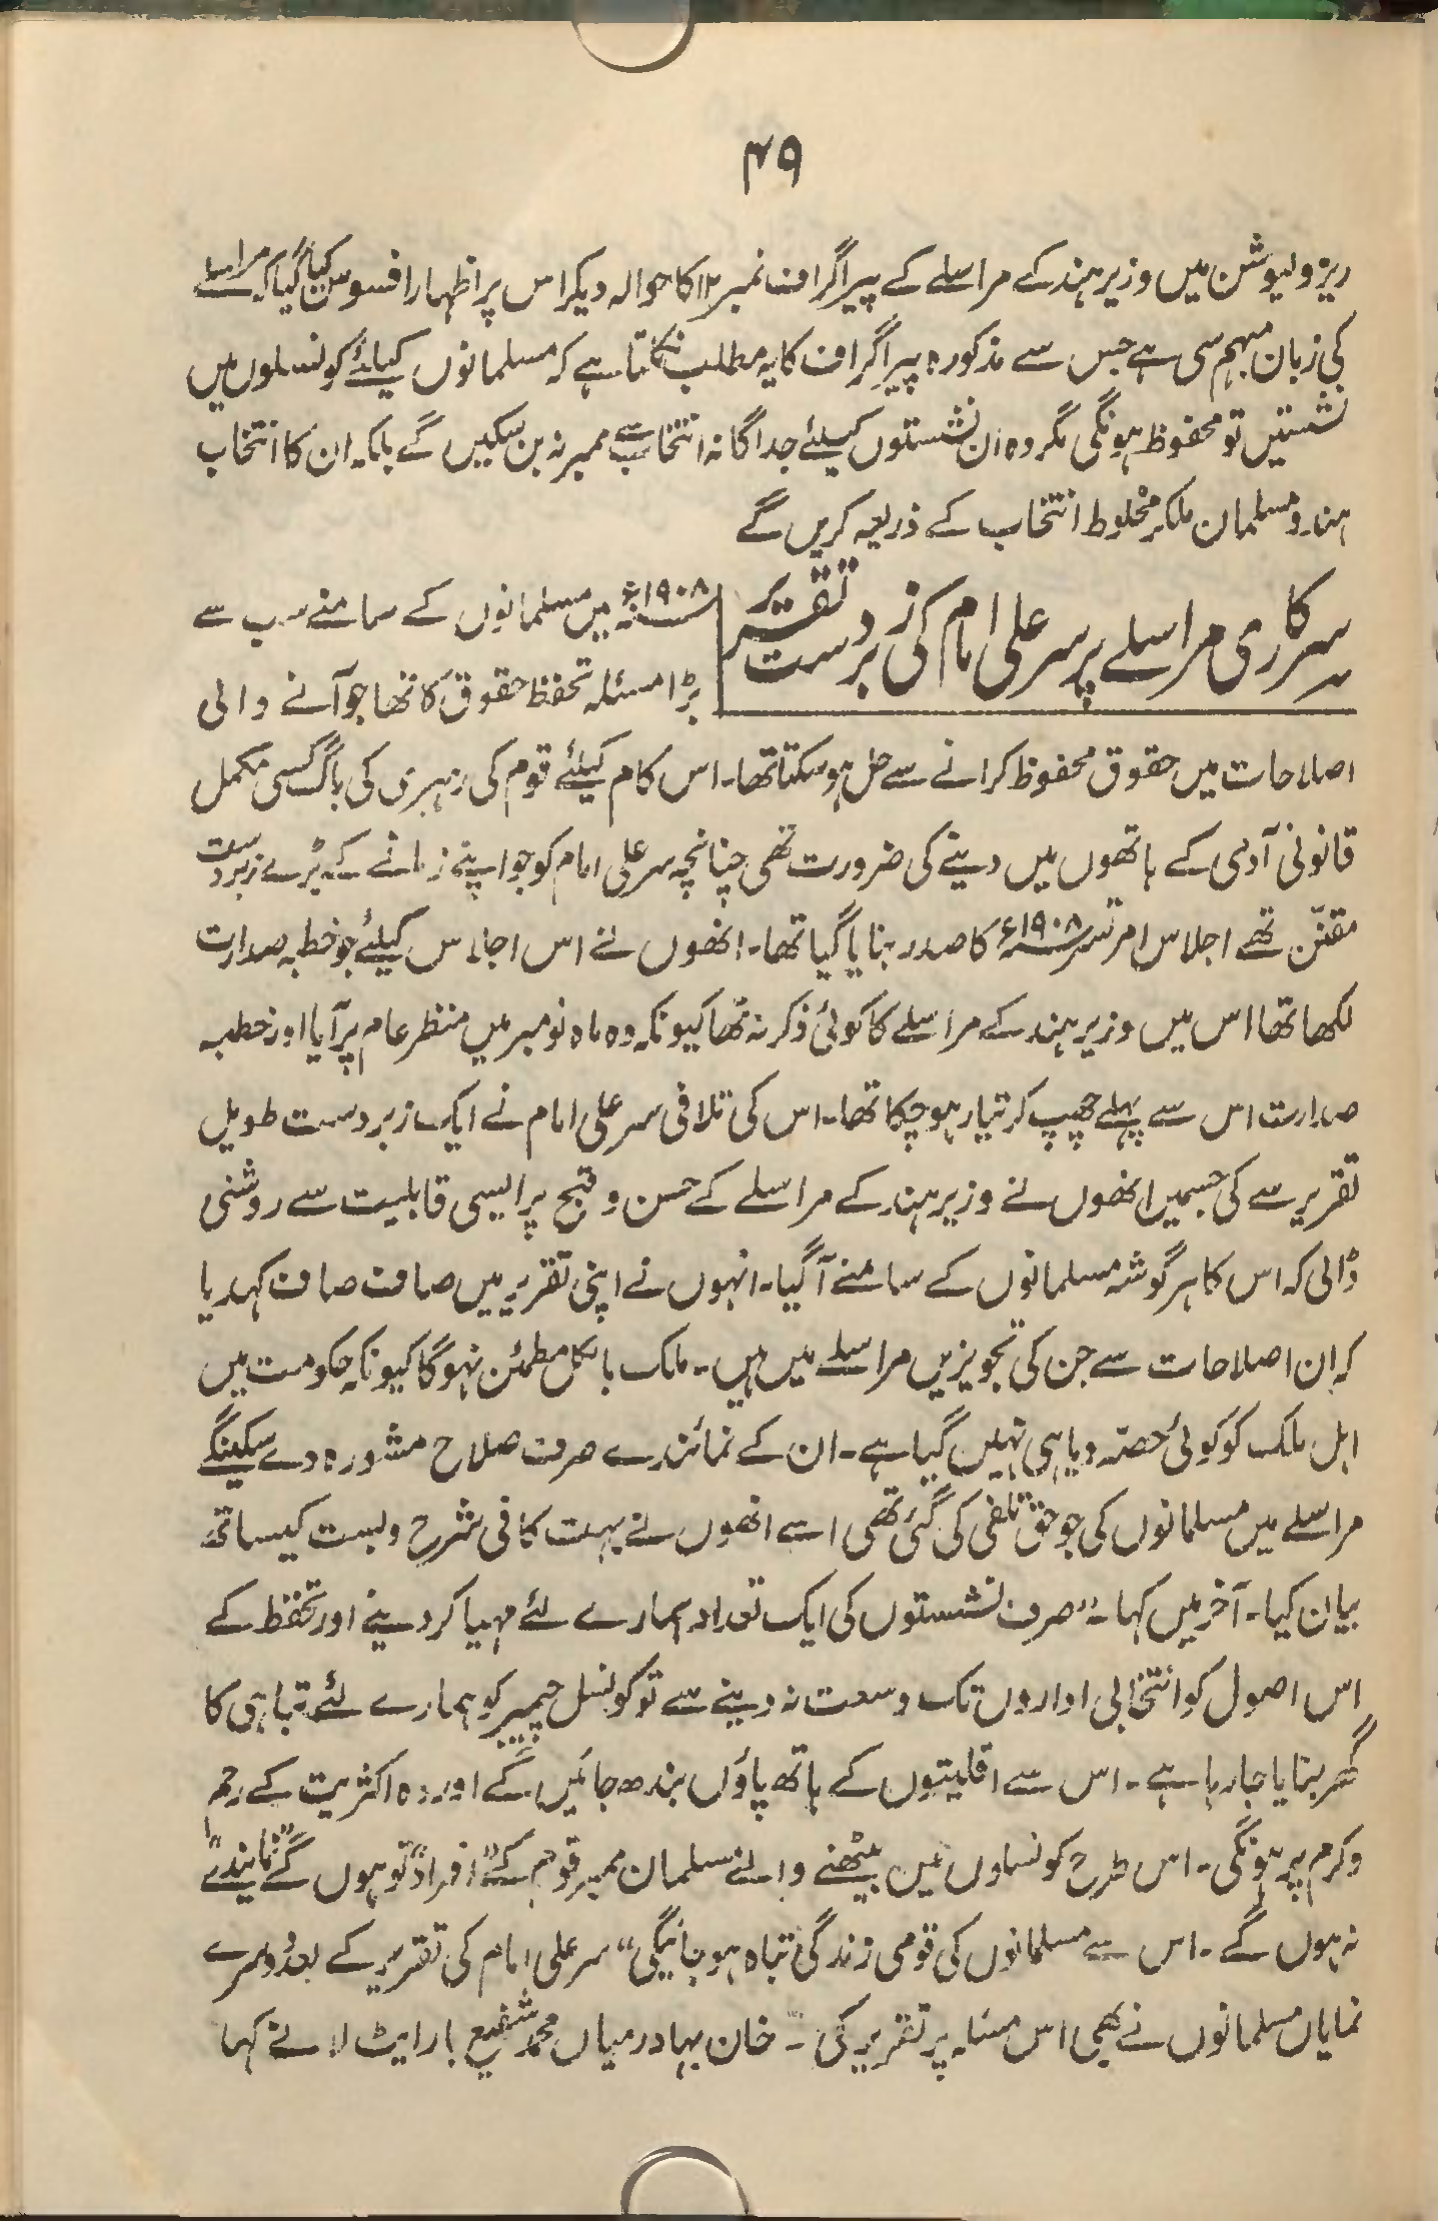 ۴۹
ریزولیوشن میں وزیر ہند کے مراسلے کے پیراگراف نمبر ۱۲ کا حوالہ دیکر اس پر اظہار افسوس کیا گیا کہ مراسلے
کی زبان مبہم سی ہے جس سے مذکورہ پیراگراف کا یہ مطلب نکلتا ہے کہ مسلمانوں کیلئے کونسلوں میں
نشستیں تو محفوظ ہونگی مگر وہ ان نشستوں کیلئے جداگانہ انتخاب سے ممبر نہ بن سکیں گے بلکہ ان کا انتخاب
ہندو مسلمان ملکر مخلوط انتخاب کے ذریعہ کریں گے
سرکاری مراسلے پر سر علی امام کی زبردست تقریر
۱۹۰۸ء میں مسلمانوں کے سامنے سب سے
بڑا مسئلہ تحفظ حقوق کا تھا جو آنے والی
اصلاحات میں حقوق محفوظ کرانے سے حل ہو سکتا تھا۔ اس کام کیلئے قوم کی رہبری کی باگ کسی مکمل
قانونی آدمی کے ہاتھوں میں دینے کی ضرورت تھی چنانچہ سر علی امام کو جو اپنے زمانے کے بڑے زبردست
مقنّن تھے اجلاس امرتسر ۱۹۰۸ء کا صدر بنایا گیا تھا۔ انھوں نے اس اجلاس کیلئے جو خطبہ صدارت
لکھا تھا اس میں وزیر ہند کے مراسلے کا کوئی ذکر نہ تھا کیونکہ وہ ماہ نومبر میں منظر عام پر آیا اور خطبہ
صدارت اس سے پہلے چھپ کر تیار ہو چکا تھا۔ اس کی تلافی سر علی امام نے ایک زبردست طویل
تقریر سے کی جسمیں انھوں نے وزیر ہند کے مراسلے کے حسن و قبح پر ایسی قابلیت سے روشنی
ڈالی کہ اس کا ہر گوشہ مسلمانوں کے سامنے آگیا۔ انہوں نے اپنی تقریر میں صاف صاف کہدیا
کہ ان اصلاحات سے جن کی تجویزیں مراسلے میں ہیں۔ ملک بالکل مطمئن نہوگا کیونکہ حکومت میں
اہل ملک کو کوئی حصّہ دیا ہی نہیں گیا ہے۔ ان کے نمائندے صرف صلاح مشورہ دے سکینگے
مراسلے میں مسلمانوں کی جو حق تلفی کی گئی تھی اسے انھوں نے بہت کافی شرح و بست کیساتھ
بیان کیا۔ آخر میں کہا۔ ”صرف نشستوں کی ایک تعداد ہمارے لئے مہیا کر دینے اور تحفظ کے
اس اصول کو انتخابی اداروں تک وسعت نہ دینے سے تو کونسل چیمبر کو ہمارے لئے تباہی کا
گھر بنایا جا رہا ہے۔ اس سے اقلیتوں کے ہاتھ پاؤں بندھ جائیں گے اور وہ اکثریت کے رحم
و کرم پر ہونگی۔ اس طرح کونسلوں میں بیٹھنے والے مسلمان ممبر قوم کے ”افراد“ تو ہوں گے ”نمایندے“
نہ ہوں گے۔ اس سے مسلمانوں کی قومی زندگی تباہ ہو جائیگی“ سر علی امام کی تقریر کے بعد دوسرے
نمایاں مسلمانوں نے بھی اس مسئلہ پر تقریر کی۔ خان بہادر میاں محمد شفیع بار ایٹ لا نے کہا